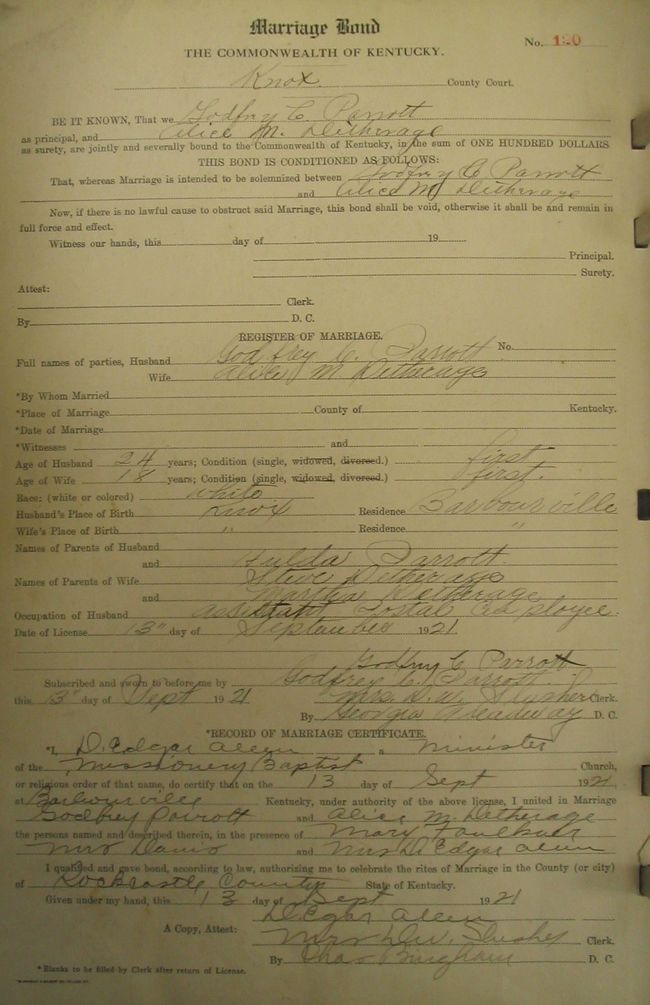 Marriage Bond
THE COMMONWEALTH OF KENTUCKY.
No. 120
Knox County Court.
BE IT KNOWN, That we Godfry C. Parrott
as principal, and Alice M. Detherage
as surety, are jointly and severally bound to the Commonwealth of Kentucky, in the sum of ONE HUNDRED DOLLARS
THIS BOND IS CONDITIONED AS FOLLOWS:
That, whereas Marriage is intended to be solemnized between Godfry C Parrott
and Alice M Detherage
Now, if there is no lawful cause to obstruct said Marriage, this bond shall be void, otherwise it shall be and remain in
full force and effect.
Witness our hands, this day of 19
Principal.
Surety.
Attest:
Clerk.
By D. C.
REGISTER OF MARRIAGE.
Full names of parties, Husband Godfrey C. Parrott No.
Wife Alice M. Detherage
*By Whom Married
*Place of Marriage County of Kentucky.
*Date of Marriage
*Witnesses and
Age of Husband 24 years; Condition (single, widowed, divorced.) first
Age of Wife 18 years; Condition (single, widowed, divorced.) first.
Race: (white or colored) white
Husband's Place of Birth Knox Residence Barbourville
Wife's Place of Birth " Residence "
Names of Parents of Husband
and Hulda Parrott.
Names of Parents of Wife Steve Detherage
and Martha Detherage
Occupation of Husband Assistant Postal Employee.
Date of License 13" day of September 1921
Godfry C Parrott
Subscribed and sworn to before me by Godfrey C. Parrott
this 13" day of Sept 1921 Mrs. D. W. Slusher Clerk.
By Georgia D. C.
*RECORD OF MARRIAGE CERTIFICATE.
*I, D. Edgar Allen a Minister
of the Missionery Baptist Church,
or religious order of that name, do certify that on the 13 day of Sept 1921
at Barbourville Kentucky, under authority of the above license, I united in Marriage
Godfrey Parrott and Alice M. Detherage
the persons named and described therein, in the presence of Mary Faulkner
Mrs Davis and Mrs D Edgar Allen
I qualified and gave bond, according to law, authorizing me to celebrate the rites of Marriage in the County (or city)
of Rockcastle County State of Kentucky.
Given under my hand, this 13 day of Sept 1921
D. Edgar Allen
A Copy, Attest: Mrs D.W. Slusher Clerk.
By Chas Bingham D. C.
*Blanks to be filled by Clerk after return of License.